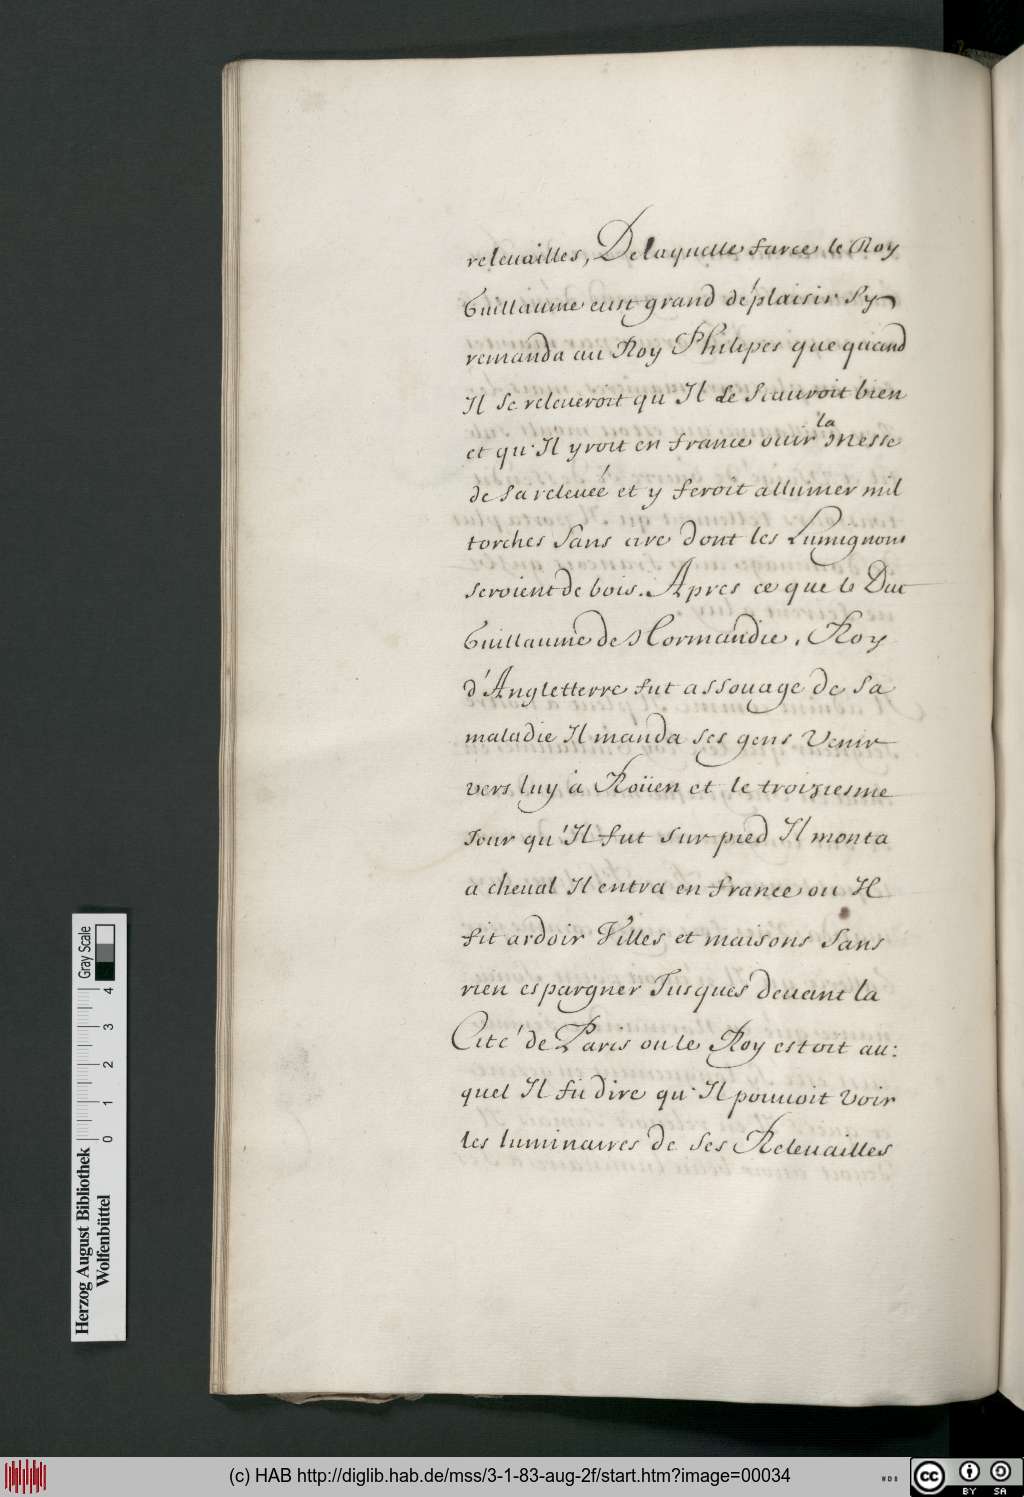 releuailles, De laquelle farce le Roy
Guillaume eust grand déplaisir Sy
remanda au Roy Philipes que quand
Il se releueroit qu'Il Le Scauroit bien
et qu'Il yroit en france ouir la Messe
de sa releueé et y feroit allumer mil
torches Sans cire dont les Lumignons
seroient de bois. Apres ce que le Duc
Guillaume de Normandie, Roy
d'Angletterre fut assouage de sa
maladie Il manda ses gens Venir
vers luy à Roüen et le troiziesme
Jour qu'Il fut sur pied Il monta
a cheual Il entra en france ou Il
fit ardoir Villes et maisons Sans
rien espargner Jusques deuant la
Cité de Paris ou le Roy estoit au:
quel Il fit dire qu'Il pouuoit voir
les luminaires de ses Releuailles
Gray Scale
0 1 2 3 4
Herzog August Bibliothek
Wolfenbüttel
(c) HAB http://diglib.hab.de/mss/3-1-83-aug-2f/start.htm?image=00034
WDB
cc BY SA